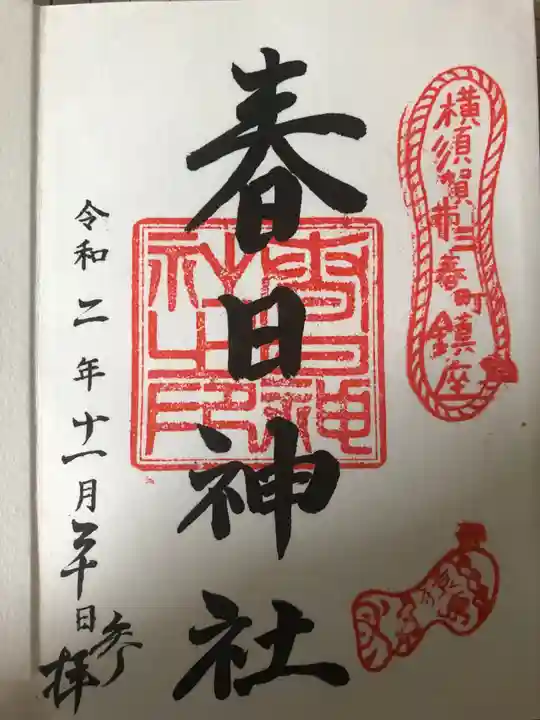 横須賀市三春町鎮座
春日神社
春日神社之印
令和二年十一月二十日
参拝